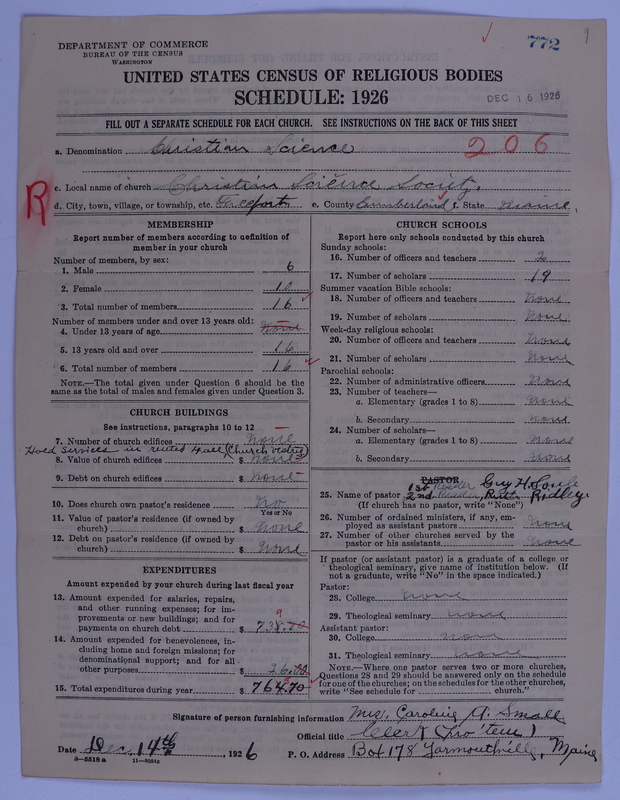 DEPARTMENT OF COMMERCE
BUREAU OF THE CENSUS
WASHINGTON
772
9
UNITED STATES CENSUS OF RELIGIOUS BODIES
SCHEDULE: 1926
DEC 16 1926
FILL OUT A SEPARATE SCHEDULE FOR EACH CHURCH. SEE INSTRUCTIONS ON THE BACK OF THIS SHEET
a. Denomination Christian Science 206
R
c. Local name of church Christian Science Society.
d. City, town, village, or township, etc. Freeport e. County Cumberland f. State Maine
MEMBERSHIP
Report number of members according to definition of
member in your church
Number of members, by sex:
1. Male 6
2. Female 10
3. Total number of members 16
Number of members under and over 13 years old:
4. Under 13 years of age None
5. 13 years old and over 16
6. Total number of members 16
NOTE.—The total given under Question 6 should be the
same as the total of males and females given under Question 3.
CHURCH BUILDINGS
See instructions, paragraphs 10 to 12
7. Number of church edifices None
Hold services in rented Hall (Church vestry)
8. Value of church edifices $ None
9. Debt on church edifices $ None
10. Does church own pastor's residence No
Yes or No
11. Value of pastor's residence (if owned by
church) $ None
12. Debt on pastor's residence (if owned by
church) $ None
EXPENDITURES
Amount expended by your church during last fiscal year
13. Amount expended for salaries, repairs,
and other running expenses; for im-
provements or new buildings; and for
payments on church debt $ 738.70
9
14. Amount expended for benevolences, in-
cluding home and foreign missions; for
denominational support; and for all
other purposes $ 26.00
15. Total expenditures during year $ 764.70
5
CHURCH SCHOOLS
Report here only schools conducted by this church
Sunday schools:
16. Number of officers and teachers 2
17. Number of scholars 19
Summer vacation Bible schools:
18. Number of officers and teachers None
19. Number of scholars None
Week-day religious schools:
20. Number of officers and teachers None
21. Number of scholars None
Parochial schools:
22. Number of administrative officers None
23. Number of teachers—
a. Elementary (grades 1 to 8) None
b. Secondary None
24. Number of scholars—
a. Elementary (grades 1 to 8) None
b. Secondary None
PASTOR
1st Reader Guy H.
25. Name of pastor 2nd Reader Ruth Ridley
(If church has no pastor, write "None")
26. Number of ordained ministers, if any, em-
ployed as assistant pastors None
27. Number of other churches served by the
pastor or his assistants None
If pastor (or assistant pastor) is a graduate of a college or
theological seminary, give name of institution below. (If
not a graduate, write "No" in the space indicated.)
Pastor:
28. College None
29. Theological seminary None
Assistant pastor:
30. College None
31. Theological seminary None
NOTE.—Where one pastor serves two or more churches,
Questions 28 and 29 should be answered only on the schedule
for one of the churches; on the schedules for the other churches,
write "See schedule for church."
Signature of person furnishing information Mrs. Caroline A. Small
Official title Clerk (Pro'tem)
Date Dec. 14th, 1926
P. O. Address Box 178 Yarmouthville, Maine
8—5518 a 11—9034a